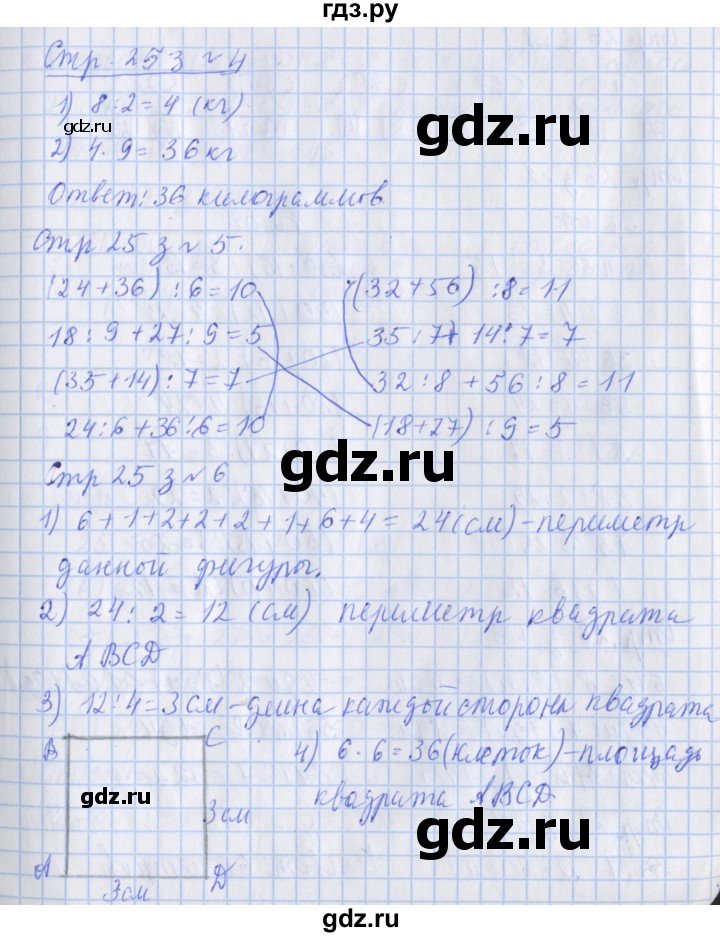 гдз.ру
Стр. 25 з № 4
1) 8:2=4 (кг)
2) 4·9=36 кг
Ответ: 36 килограммов
Стр 25 з № 5.
(24+36):6=10 (32+56):8=11
18:9+27:9=5 35:7+14:7=7
(35+14):7=7 32:8+56:8=11
24:6+36:6=10 (18+27):9=5
Стр 25 з № 6
1) 6+1+2+2+2+1+6+4=24(см)-периметр
данной фигуры.
2) 24:2=12 (см) периметр квадрата
ABCD
3) 12:4=3 см-длина каждой стороны квадрата
B C 4) 6·6=36(клеток)-площадь
квадрата ABCD
3 см
A D
3 см
gdz.ru
gdz.ru
gdz.ru
gdz.ru
gdz.ru
gdz.ru
gdz.ru